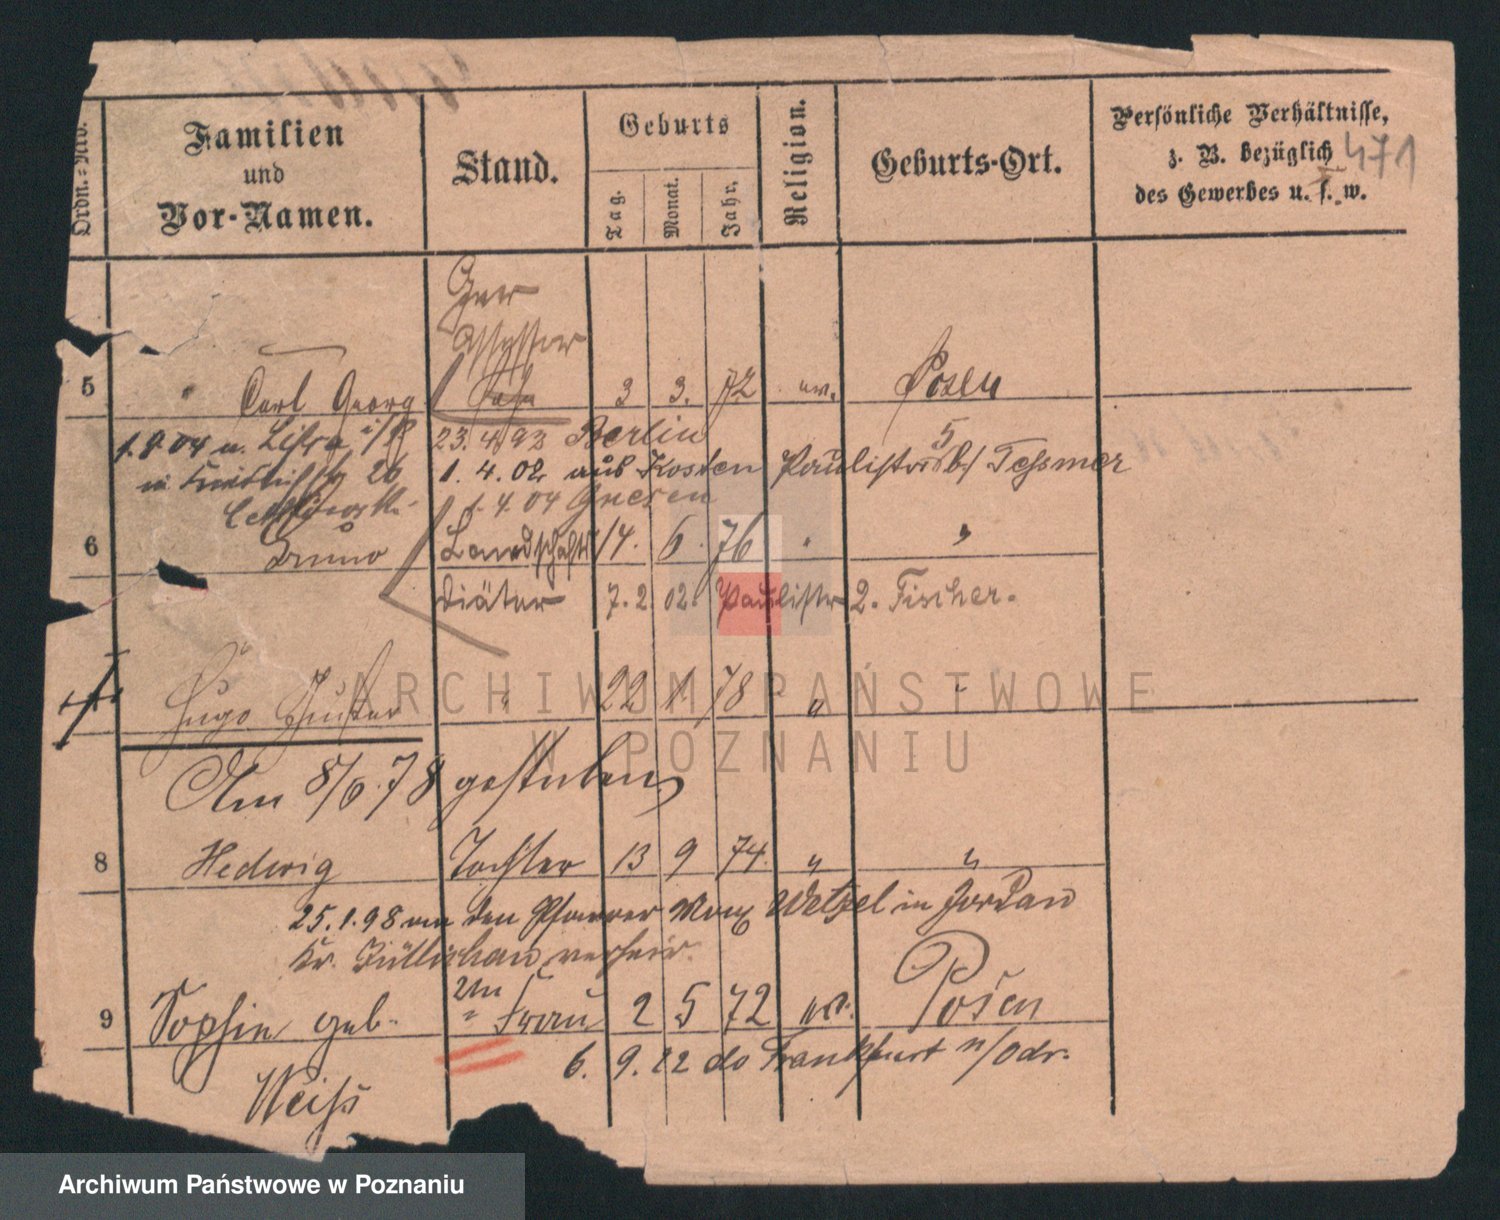 Ordn.=Nro.
Familien
und
Vor-Namen.
Stand.
Geburts
Tag.
Monat.
Jahr.
Religion.
Geburts-Ort.
Persönliche Verhältnisse,
z. B. bezüglich
des Gewerbes u. s. w.
471
Ger
Assessor
5 Carl Georg Sohn 3 3. 72 ev. Posen
1.9.04 n. Lissa i/P 23.4.93 Berlin
26 1.4.02 aus Kosten Paulistr 5 b/ Tessmer
1.4.04 Gnesen
6 Bruno Landschafts 14. 6. 76 "
Diätar 7.2.02. Paulistr 2. Fischer.
Hugo Gustav " 22 1 78 " "
Am 8/6.78 gestorben
8 Hedwig Tochter 13 9 74. " "
25.1.98 an den Pfarrer Max Wetzel in Jordan
Kr. Züllichau verheir.
9 Sophie geb. 2te Frau 2 5 72 ev. Posen
6. 9. 22 do Frankfurt a/Odr.
Weiss
ARCHIWUM PAŃSTWOWE
W POZNANIU
Archiwum Państwowe w Poznaniu